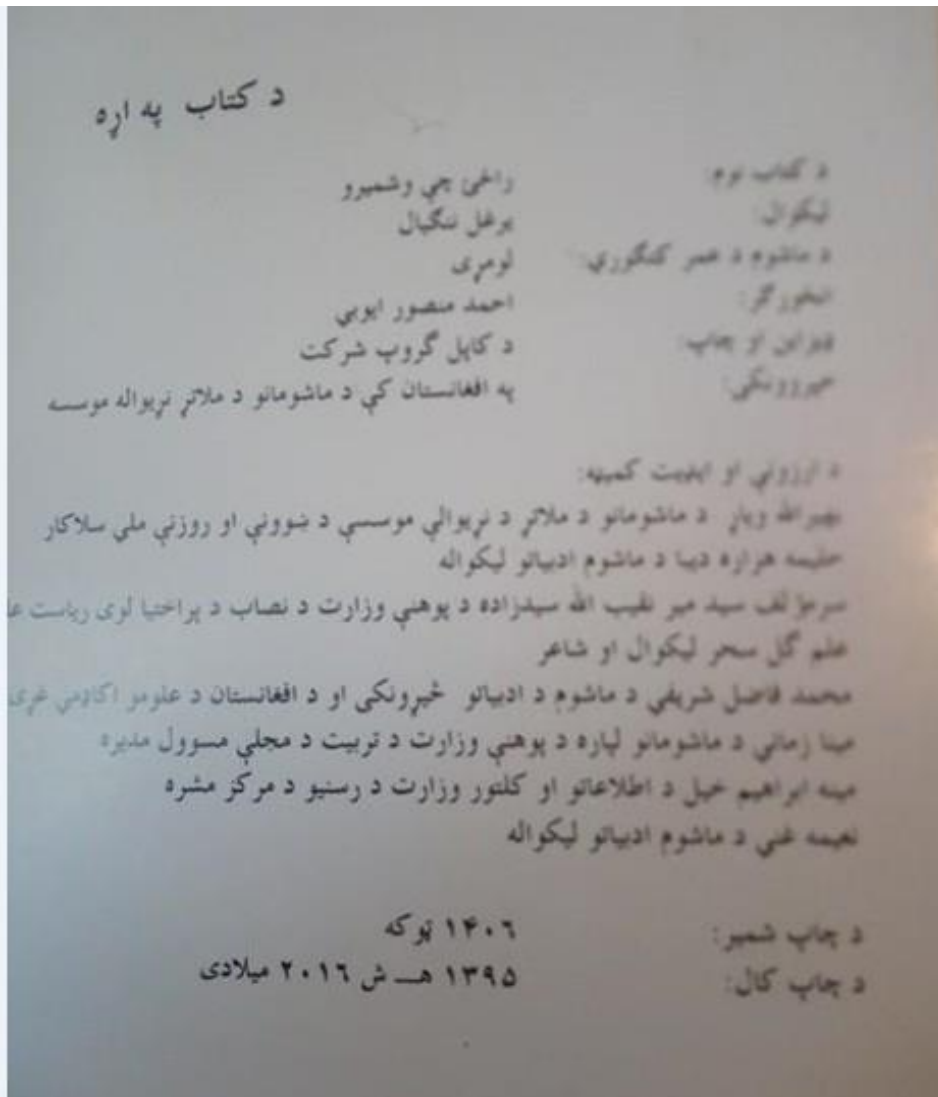 د کتاب په اړه
د کتاب نوم: راځئ چې وشمیرو
لیکوال: برغل ننګیال
د ماشوم د عمر کټګوري: لومړی
انځورګر: احمد منصور ایوبي
ډیزاین او چاپ: د کاپل گروپ شرکت
خپروونکی: په افغانستان کې د ماشومانو د ملاتړ نړیواله موسسه
د ارزونې او اېډېټ کمیټه:
ویاړ د ماشومانو د ملاتړ د نړیوالې موسسې د ښوونې او روزنې ملي سلاکار
حلیمه هزاره دیبا د ماشوم ادبیاتو لیکواله
سرمؤلف سید میر نقیب الله سیدزاده د پوهنې وزارت د نصاب د پراختیا لوی ریاست
علم گل سحر لیکوال او شاعر
محمد فاضل شریفي د ماشوم د ادبیاتو څیړونکی او د افغانستان د علومو اکاډمي غړی
مینا زماني د ماشومانو لپاره د پوهنې وزارت د تربیت د مجلې مسوول مدیره
مینه ابراهیم خیل د اطلاعاتو او کلتور وزارت د رسنیو د مرکز مشره
نعیمه غني د ماشوم ادبیاتو لیکواله
د چاپ شمیر: ۱۴۰۶ ټوکه
د چاپ کال: ۱۳۹۵ هـ ش ۲۰۱۶ میلادی